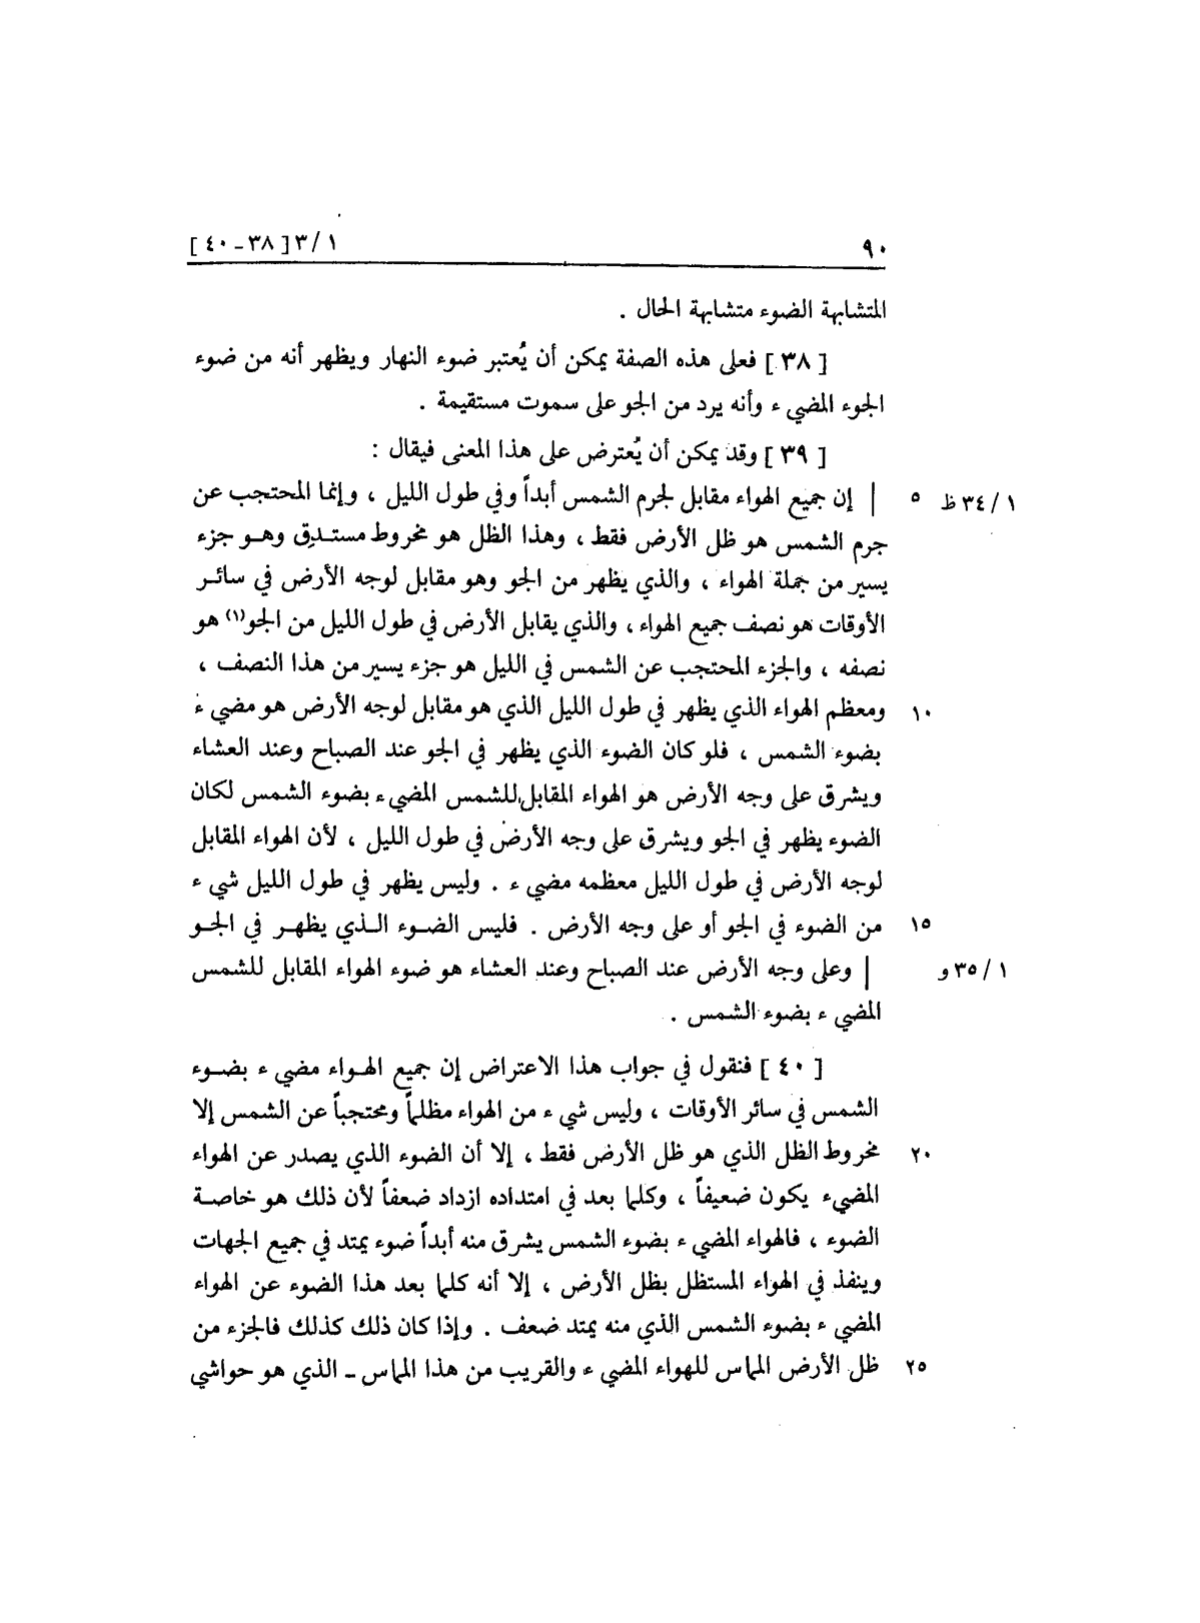 ٩٠ ١/ ٣ [ ٣٨ - ٤٠ ]
المتشابهة الضوء متشابهة الحال .
[ ٣٨ ] فعلى هذه الصفة يمكن أن يُعتبر ضوء النهار ويظهر أنه من ضوء
الجوء المضيء وأنه يرد من الجو على سموت مستقيمة .
[ ٣٩ ] وقد يمكن أن يُعترض على هذا المعنى فيقال :
١/ ٣٤ظ ٥ | إن جميع الهواء مقابل لجرم الشمس أبداً وفي طول الليل ، وإنما المحتجب عن
جرم الشمس هو ظل الأرض فقط ، وهذا الظل هو مخروط مستدِق وهو جزء
يسير من جملة الهواء ، والذي يظهر من الجو وهو مقابل لوجه الأرض في سائر
الأوقات هو نصف جميع الهواء ، والذي يقابل الأرض في طول الليل من الجو(١) هو
نصفه ، والجزء المحتجب عن الشمس في الليل هو جزء يسير من هذا النصف ،
١٠ ومعظم الهواء الذي يظهر في طول الليل الذي هو مقابل لوجه الأرض هو مضيء
بضوء الشمس ، فلو كان الضوء الذي يظهر في الجو عند الصباح وعند العشاء
ويشرق على وجه الأرض هو الهواء المقابل للشمس المضيء بضوء الشمس لكان
الضوء يظهر في الجو ويشرق على وجه الأرض في طول الليل ، لأن الهواء المقابل
لوجه الأرض في طول الليل معظمه مضيء . وليس يظهر في طول الليل شيء
١٥ من الضوء في الجو أو على وجه الأرض . فليس الضوء الذي يظهر في الجو
١/ ٣٥ و | وعلى وجه الأرض عند الصباح وعند العشاء هو ضوء الهواء المقابل للشمس
المضيء بضوء الشمس .
[ ٤٠ ] فنقول في جواب هذا الاعتراض إن جميع الهواء مضيء بضوء
الشمس في سائر الأوقات ، وليس شيء من الهواء مظلماً ومحتجباً عن الشمس إلا
٢٠ مخروط الظل الذي هو ظل الأرض فقط ، إلا أن الضوء الذي يصدر عن الهواء
المضيء يكون ضعيفاً ، وكلما بعد في امتداده ازداد ضعفاً لأن ذلك هو خاصة
الضوء ، فالهواء المضيء بضوء الشمس يشرق منه أبداً ضوء يمتد في جميع الجهات
وينفذ في الهواء المستظل بظل الأرض ، إلا أنه كلما بعد هذا الضوء عن الهواء
المضيء بضوء الشمس الذي منه يمتد ضعف . وإذا كان ذلك كذلك فالجزء من
٢٥ ظل الأرض المماس للهواء المضيء والقريب من هذا المماس ــ الذي هو حواشي